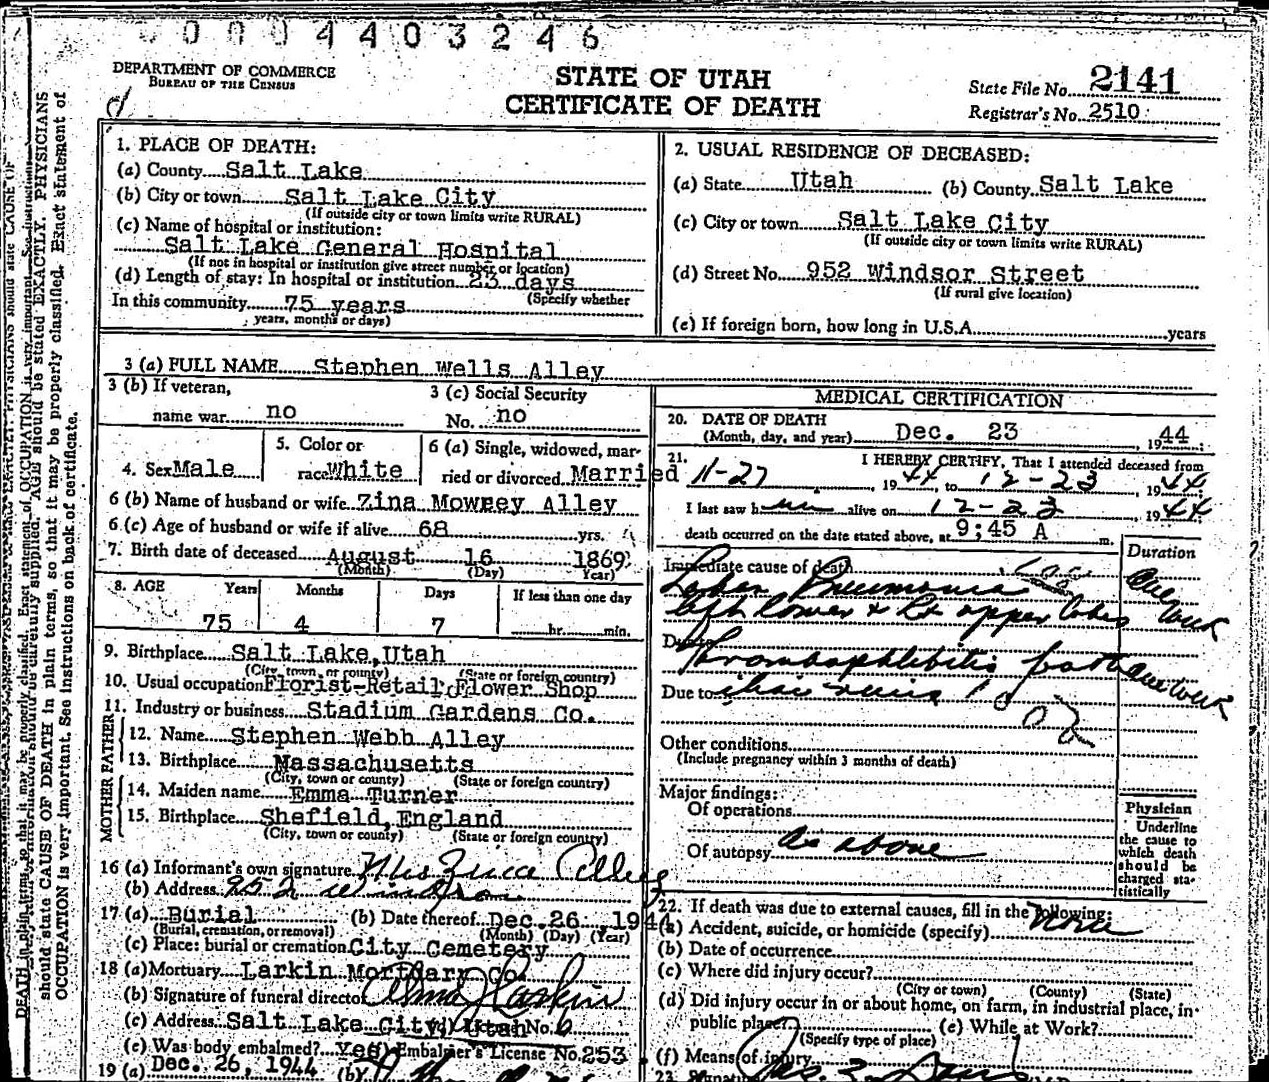 0 0 0 4 4 0 3 2 4 6
DEPARTMENT OF COMMERCE
BUREAU OF THE CENSUS
STATE OF UTAH
CERTIFICATE OF DEATH
State File No. 2141
Registrar's No. 2510
1. PLACE OF DEATH:
(a) County Salt Lake
(b) City or town Salt Lake City
(If outside city or town limits write RURAL)
(c) Name of hospital or institution:
Salt Lake General Hospital
(If not in hospital or institution give street number or location)
(d) Length of stay: In hospital or institution 23 days
(Specify whether
In this community 75 years
years, months or days)
2. USUAL RESIDENCE OF DECEASED:
(a) State Utah (b) County Salt Lake
(c) City or town Salt Lake City
(If outside city or town limits write RURAL)
(d) Street No. 952 Windsor Street
(If rural give location)
(e) If foreign born, how long in U.S.A. years
3 (a) FULL NAME Stephen Wells Alley
3 (b) If veteran,
name war no
3 (c) Social Security
No. no
4. Sex Male
5. Color or
race White
6 (a) Single, widowed, mar-
ried or divorced Married
6 (b) Name of husband or wife Zina Mowrey Alley
6 (c) Age of husband or wife if alive 68 yrs.
7. Birth date of deceased August 16 1869
(Month) (Day) Year)
8. AGE Years Months Days If less than one day
75 4 7 hr. min.
9. Birthplace Salt Lake, Utah
(City, town or county) (State or foreign country)
10. Usual occupation Florist-Retail Flower Shop
11. Industry or business Stadium Gardens Co.
FATHER
12. Name Stephen Webb Alley
13. Birthplace Massachusetts
(City, town or county) (State or foreign country)
MOTHER
14. Maiden name Emma Turner
15. Birthplace Shefield, England
(City, town or county) (State or foreign country)
16 (a) Informant's own signature Mrs Zina Alley
(b) Address 952 Windsor
17 (a) Burial (b) Date thereof Dec. 26, 1944
(Burial, cremation, or removal) (Month) (Day) (Year)
(c) Place: burial or cremation City Cemetery
18 (a) Mortuary Larkin Mortuary Co.
(b) Signature of funeral director Larkin
(c) Address Salt Lake City, Utah No. 6
(e) Was body embalmed? Yes Embalmer's License No. 253
19 (a) Dec. 26, 1944 (b)
MEDICAL CERTIFICATION
20. DATE OF DEATH
(Month, day, and year) Dec. 23, 1944
21. I HEREBY CERTIFY, That I attended deceased from
11-27, 1944, to 12-23, 1944
I last saw him alive on 12-23, 1944
death occurred on the date stated above, at 9:45 A m.
Duration
Immediate cause of death
Lobar Pneumonia One
left lower & Rt upper lobes week
Due to
Thrombophlebitis both One week
Due to iliac veins
Other conditions
(Include pregnancy within 3 months of death)
Major findings:
Of operations
Of autopsy As above
Physician
Underline
the cause to
which death
should be
charged sta-
tistically
22. If death was due to external causes, fill in the following:
(a) Accident, suicide, or homicide (specify) None
(b) Date of occurrence
(c) Where did injury occur?
(City or town) (County) (State)
(d) Did injury occur in or about home, on farm, in industrial place, in
public place? (e) While at Work?
(Specify type of place)
(f) Means of injury
23. Signature
should state CAUSE OF DEATH in plain terms, so that it may be properly classified. Exact statement of
OCCUPATION is very important. See instructions on back of certificate.